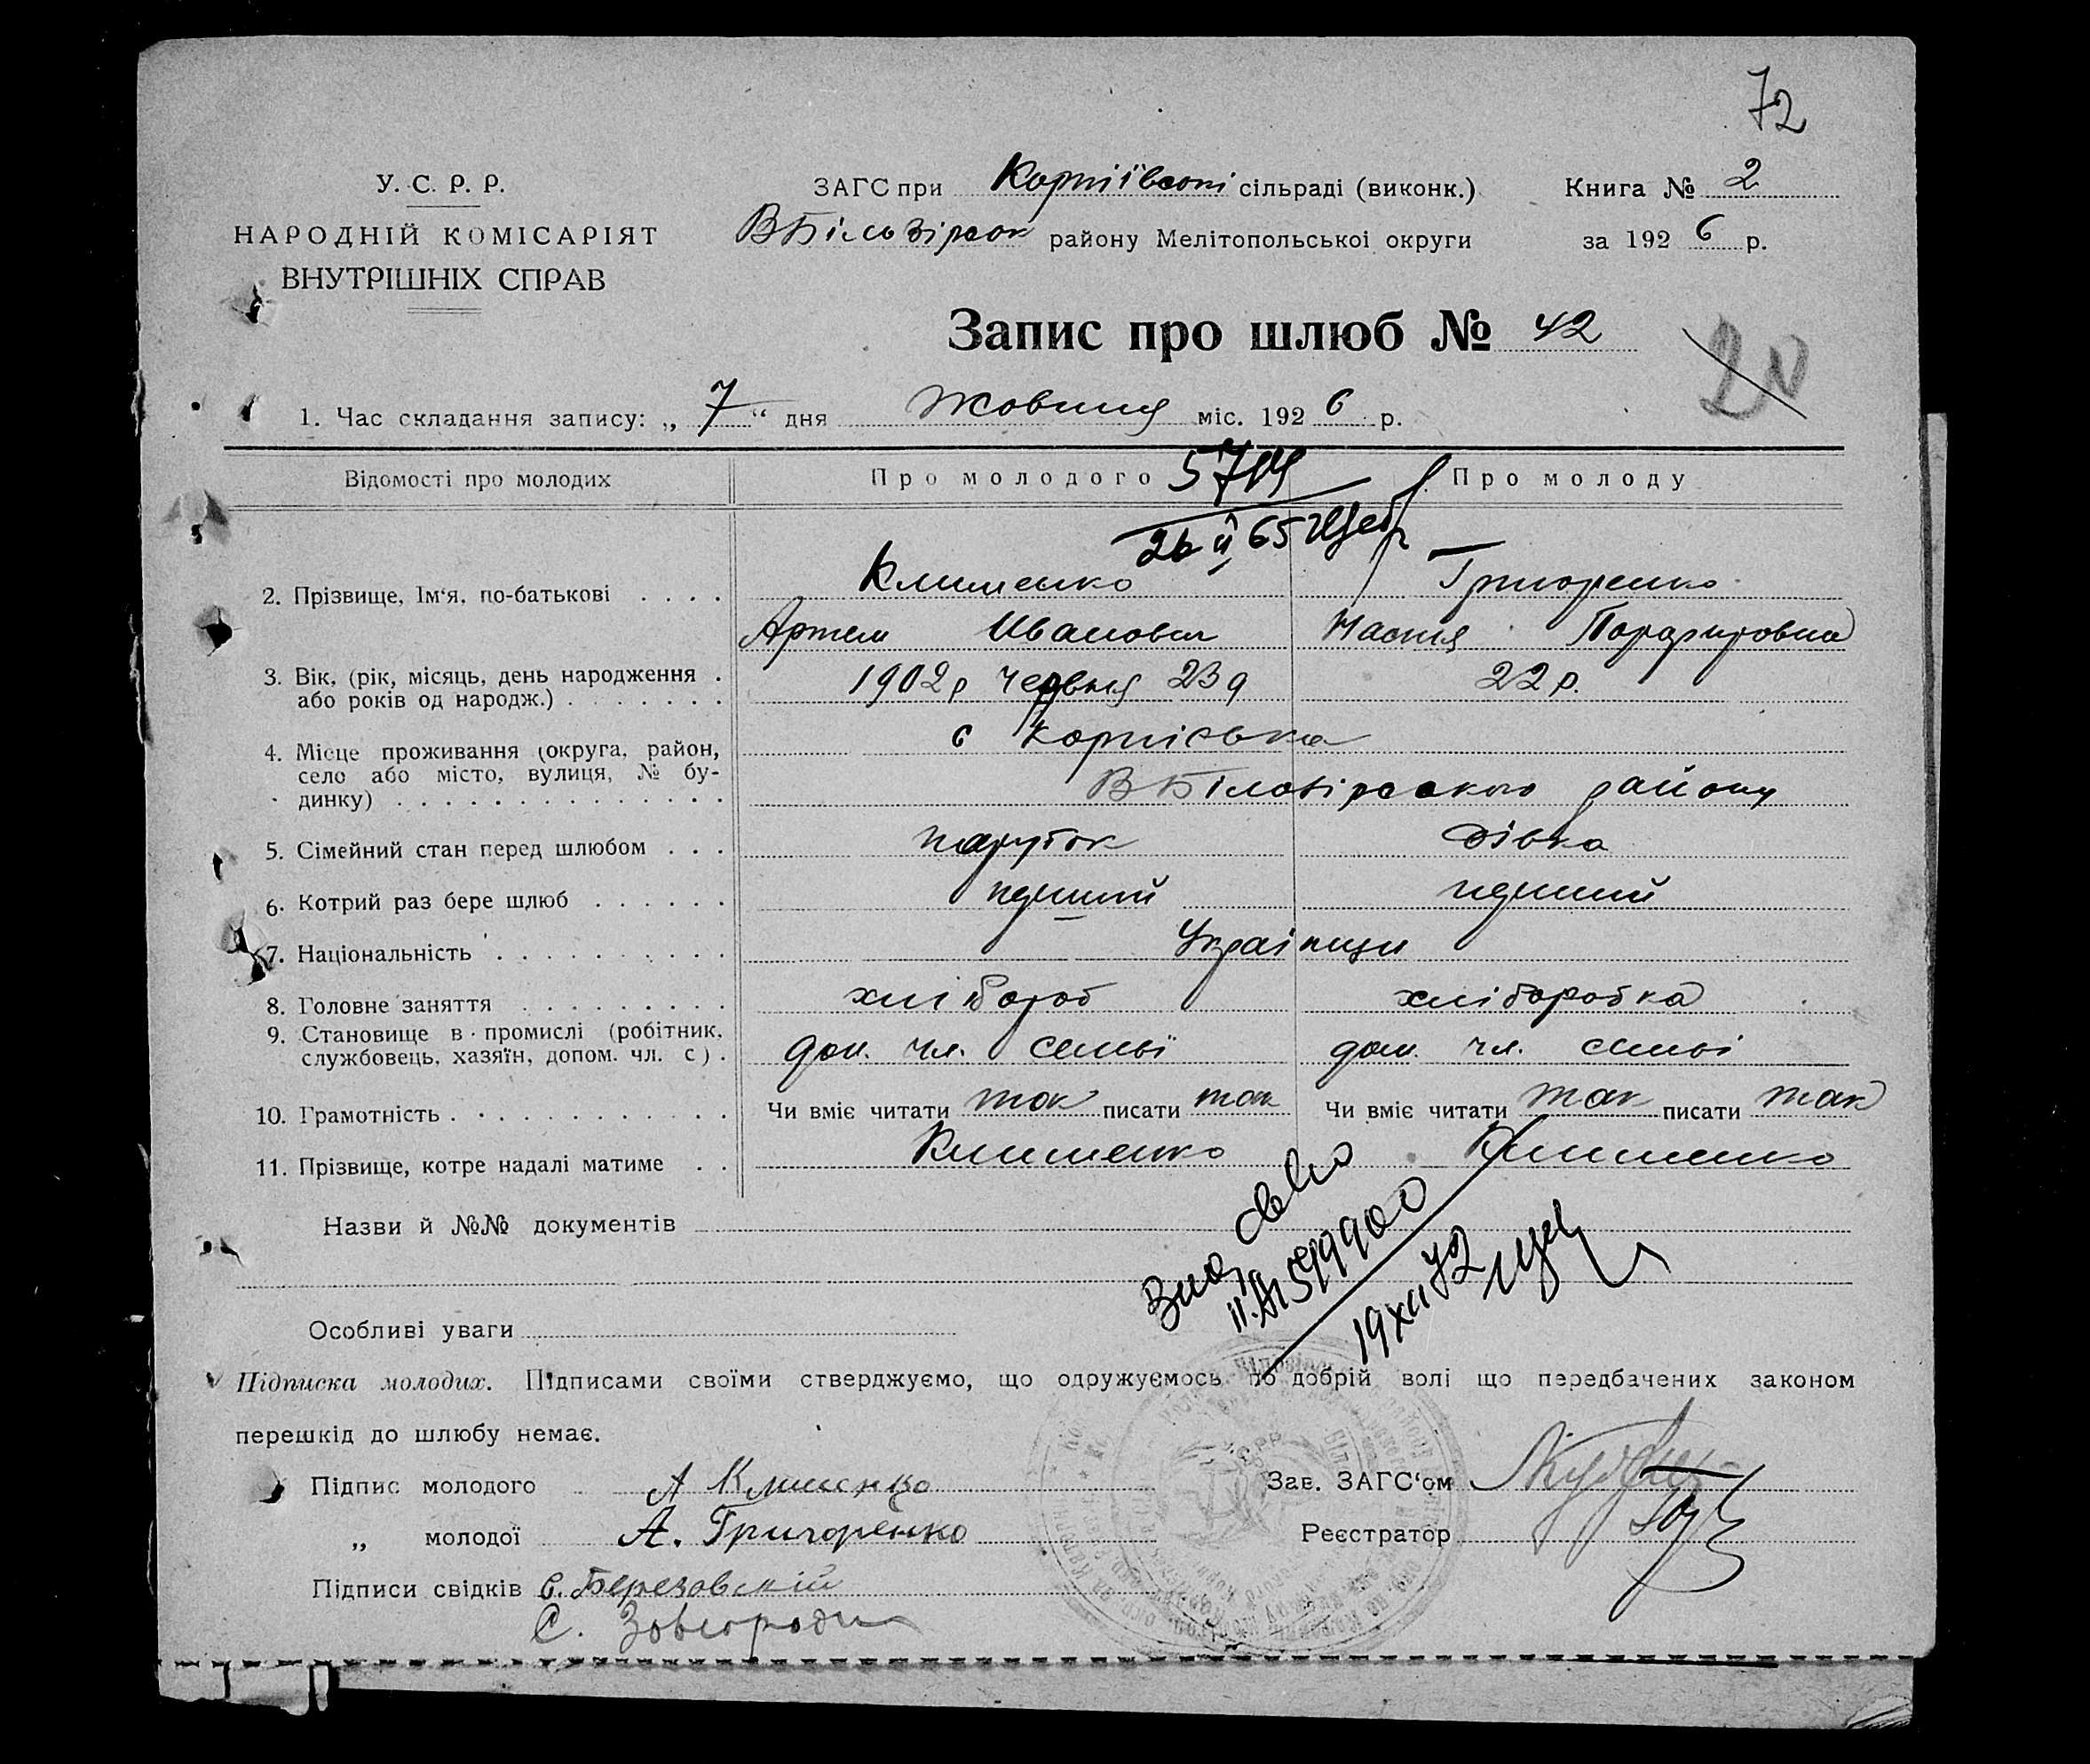 72
У. С. Р. Р.
НАРОДНІЙ КОМІСАРІЯТ
ВНУТРІШНІХ СПРАВ
ЗАГС при Корніївскі сільраді (виконк.)
Книга № 2
ВБільзірсок району Мелітопольськоі округи
за 1926 р.
Запис про шлюб № 42
20
1. Час складання запису: „ 7 “ дня Жовтня міс. 1926 р.
Відомості про молодих Про молодого Про молоду
26 II 65
2. Прізвище, Ім‘я, по-батькові . . . . Клименко Григоренко
Артем Иванович Настя Порфировна
3. Вік, (рік, місяць, день народження .
або років од народж.) . . . . . . . 1902р червня 23д 22 р.
4. Місце проживання (округа, район,
село або місто, вулиця, № бу-
динку) . . . . . . . . . . . . . .
с Корніївка
ВБілозірського району
5. Сімейний стан перед шлюбом . . . парубок дівка
6. Котрий раз бере шлюб . . . . . . перший перший
7. Національність . . . . . . . . . . Українци
8. Головне заняття . . . . . . . . . хлібороб хліборобка
9. Становище в промислі (робітник,
службовець, хазяїн, допом. чл. с) . доп. чл. семьї доп. чл. семьі
10. Грамотність . . . . . . . . . . . Чи вміє читати так писати так Чи вміє читати так писати так
11. Прізвище, котре надалі матиме . . Клименко Клименко
Назви й №№ документів
19 XII 72
Особливі уваги
Підписка молодих. Підписами своїми стверджуємо, що одружуємось по добрій волі що передбачених законом
перешкід до шлюбу немає.
Підпис молодого А Клименко
Зав. ЗАГС‘ом
„ молодої А. Григоренко
Реєстратор
Підписи свідків С. Березовскій
С.